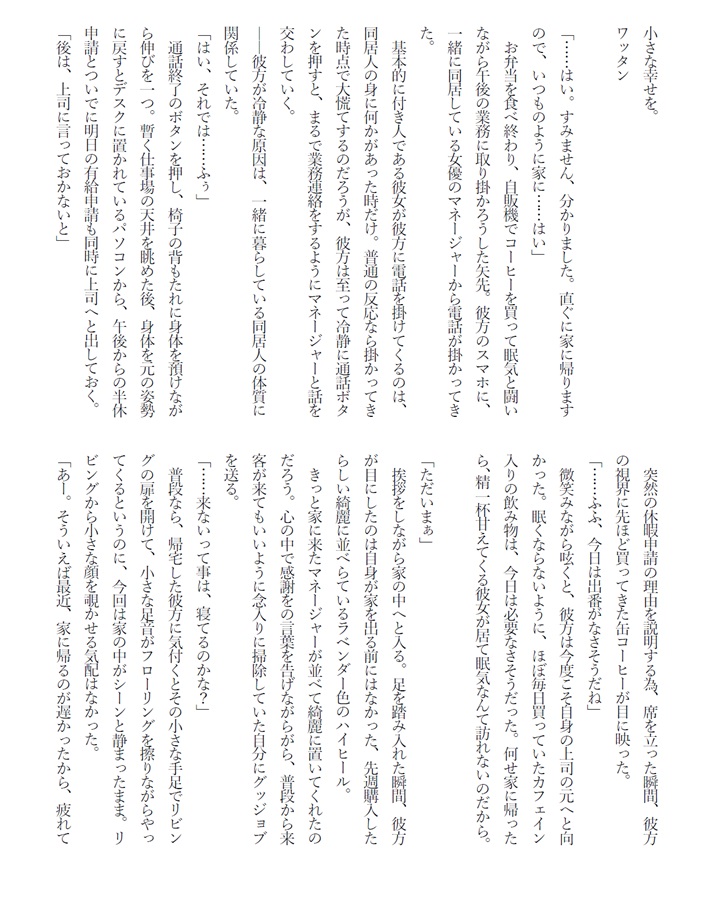 小さな幸せを。
ワッタン
「……はい。すみません、分かりました。直ぐに家に帰ります
ので、いつものように家に……はい」
　お弁当を食べ終わり、自販機でコーヒーを買って眠気と闘い
ながら午後の業務に取り掛かろうした矢先。彼方のスマホに、
一緒に同居している女優のマネージャーから電話が掛かってき
た。
　基本的に付き人である彼女が彼方に電話を掛けてくるのは、
同居人の身に何かがあった時だけ。普通の反応なら掛かってき
た時点で大慌てするのだろうが、彼方は至って冷静に通話ボタ
ンを押すと、まるで業務連絡をするようにマネージャーと話を
交わしていく。
――彼方が冷静な原因は、一緒に暮らしている同居人の体質に
関係していた。
「はい、それでは……ふぅ」
　通話終了のボタンを押し、椅子の背もたれに身体を預けなが
ら伸びを一つ。暫く仕事場の天井を眺めた後、身体を元の姿勢
に戻すとデスクに置かれているパソコンから、午後からの半休
申請とついでに明日の有給申請も同時に上司へと出しておく。
「後は、上司に言っておかないと」
　突然の休暇申請の理由を説明する為、席を立った瞬間、彼方
の視界に先ほど買ってきた缶コーヒーが目に映った。
「……ふふ、今日は出番がなさそうだね」
　微笑みながら呟くと、彼方は今度こそ自身の上司の元へと向
かった。眠くならないように、ほぼ毎日買っていたカフェイン
入りの飲み物は、今日は必要なさそうだった。何せ家に帰った
ら、精一杯甘えてくる彼女が居て眠気なんて訪れないのだから。
「ただいまぁ」
　挨拶をしながら家の中へと入る。足を踏み入れた瞬間、彼方
が目にしたのは自身が家を出る前にはなかった、先週購入した
らしい綺麗に並べらているラベンダー色のハイヒール。
　きっと家に来たマネージャーが並べて綺麗に置いてくれたの
だろう。心の中で感謝をの言葉を告げながらがら、普段から来
客が来てもいいように念入りに掃除していた自分にグッジョブ
を送る。
「……来ないって事は、寝てるのかな？」
　普段なら、帰宅した彼方に気付くとその小さな手足でリビン
グの扉を開けて、小さな足音がフローリングを擦りながらやっ
てくるというのに、今回は家の中がシーンと静まったまま。リ
ビングから小さな顔を覗かせる気配はなかった。
「あー。そういえば最近、家に帰るのが遅かったから、疲れて